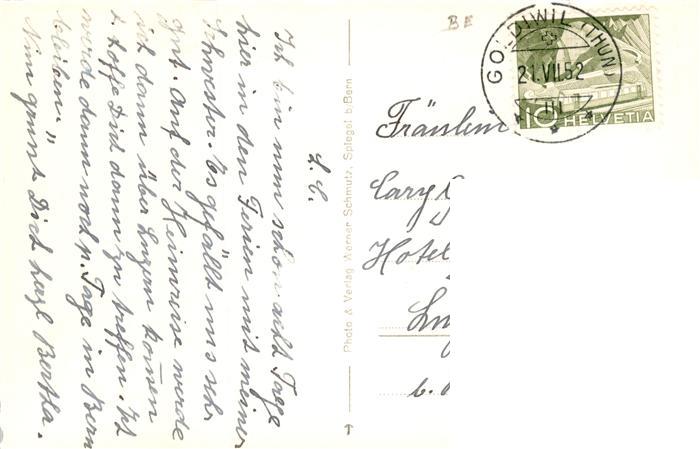 L. C.
Ich bin nun schon acht Tage
hier in den Ferien mit meiner
Schwester. Es gefällt uns sehr
gut. Auf der Heimreise werde
ich dann über Luzern komen
& hoff Dich dann zu treffen. Ich
werde dann noch p. Tage in Bern
bleiben.
Nun grüsst Dich herzl Bertha.
Photo & Verlag Werner Schmutz, Spiegel b/Bern
BE
GOLDIWIL (THUN)
21.VII.52
10 HELVETIA
Fräulein
Cary
Hotel
b.